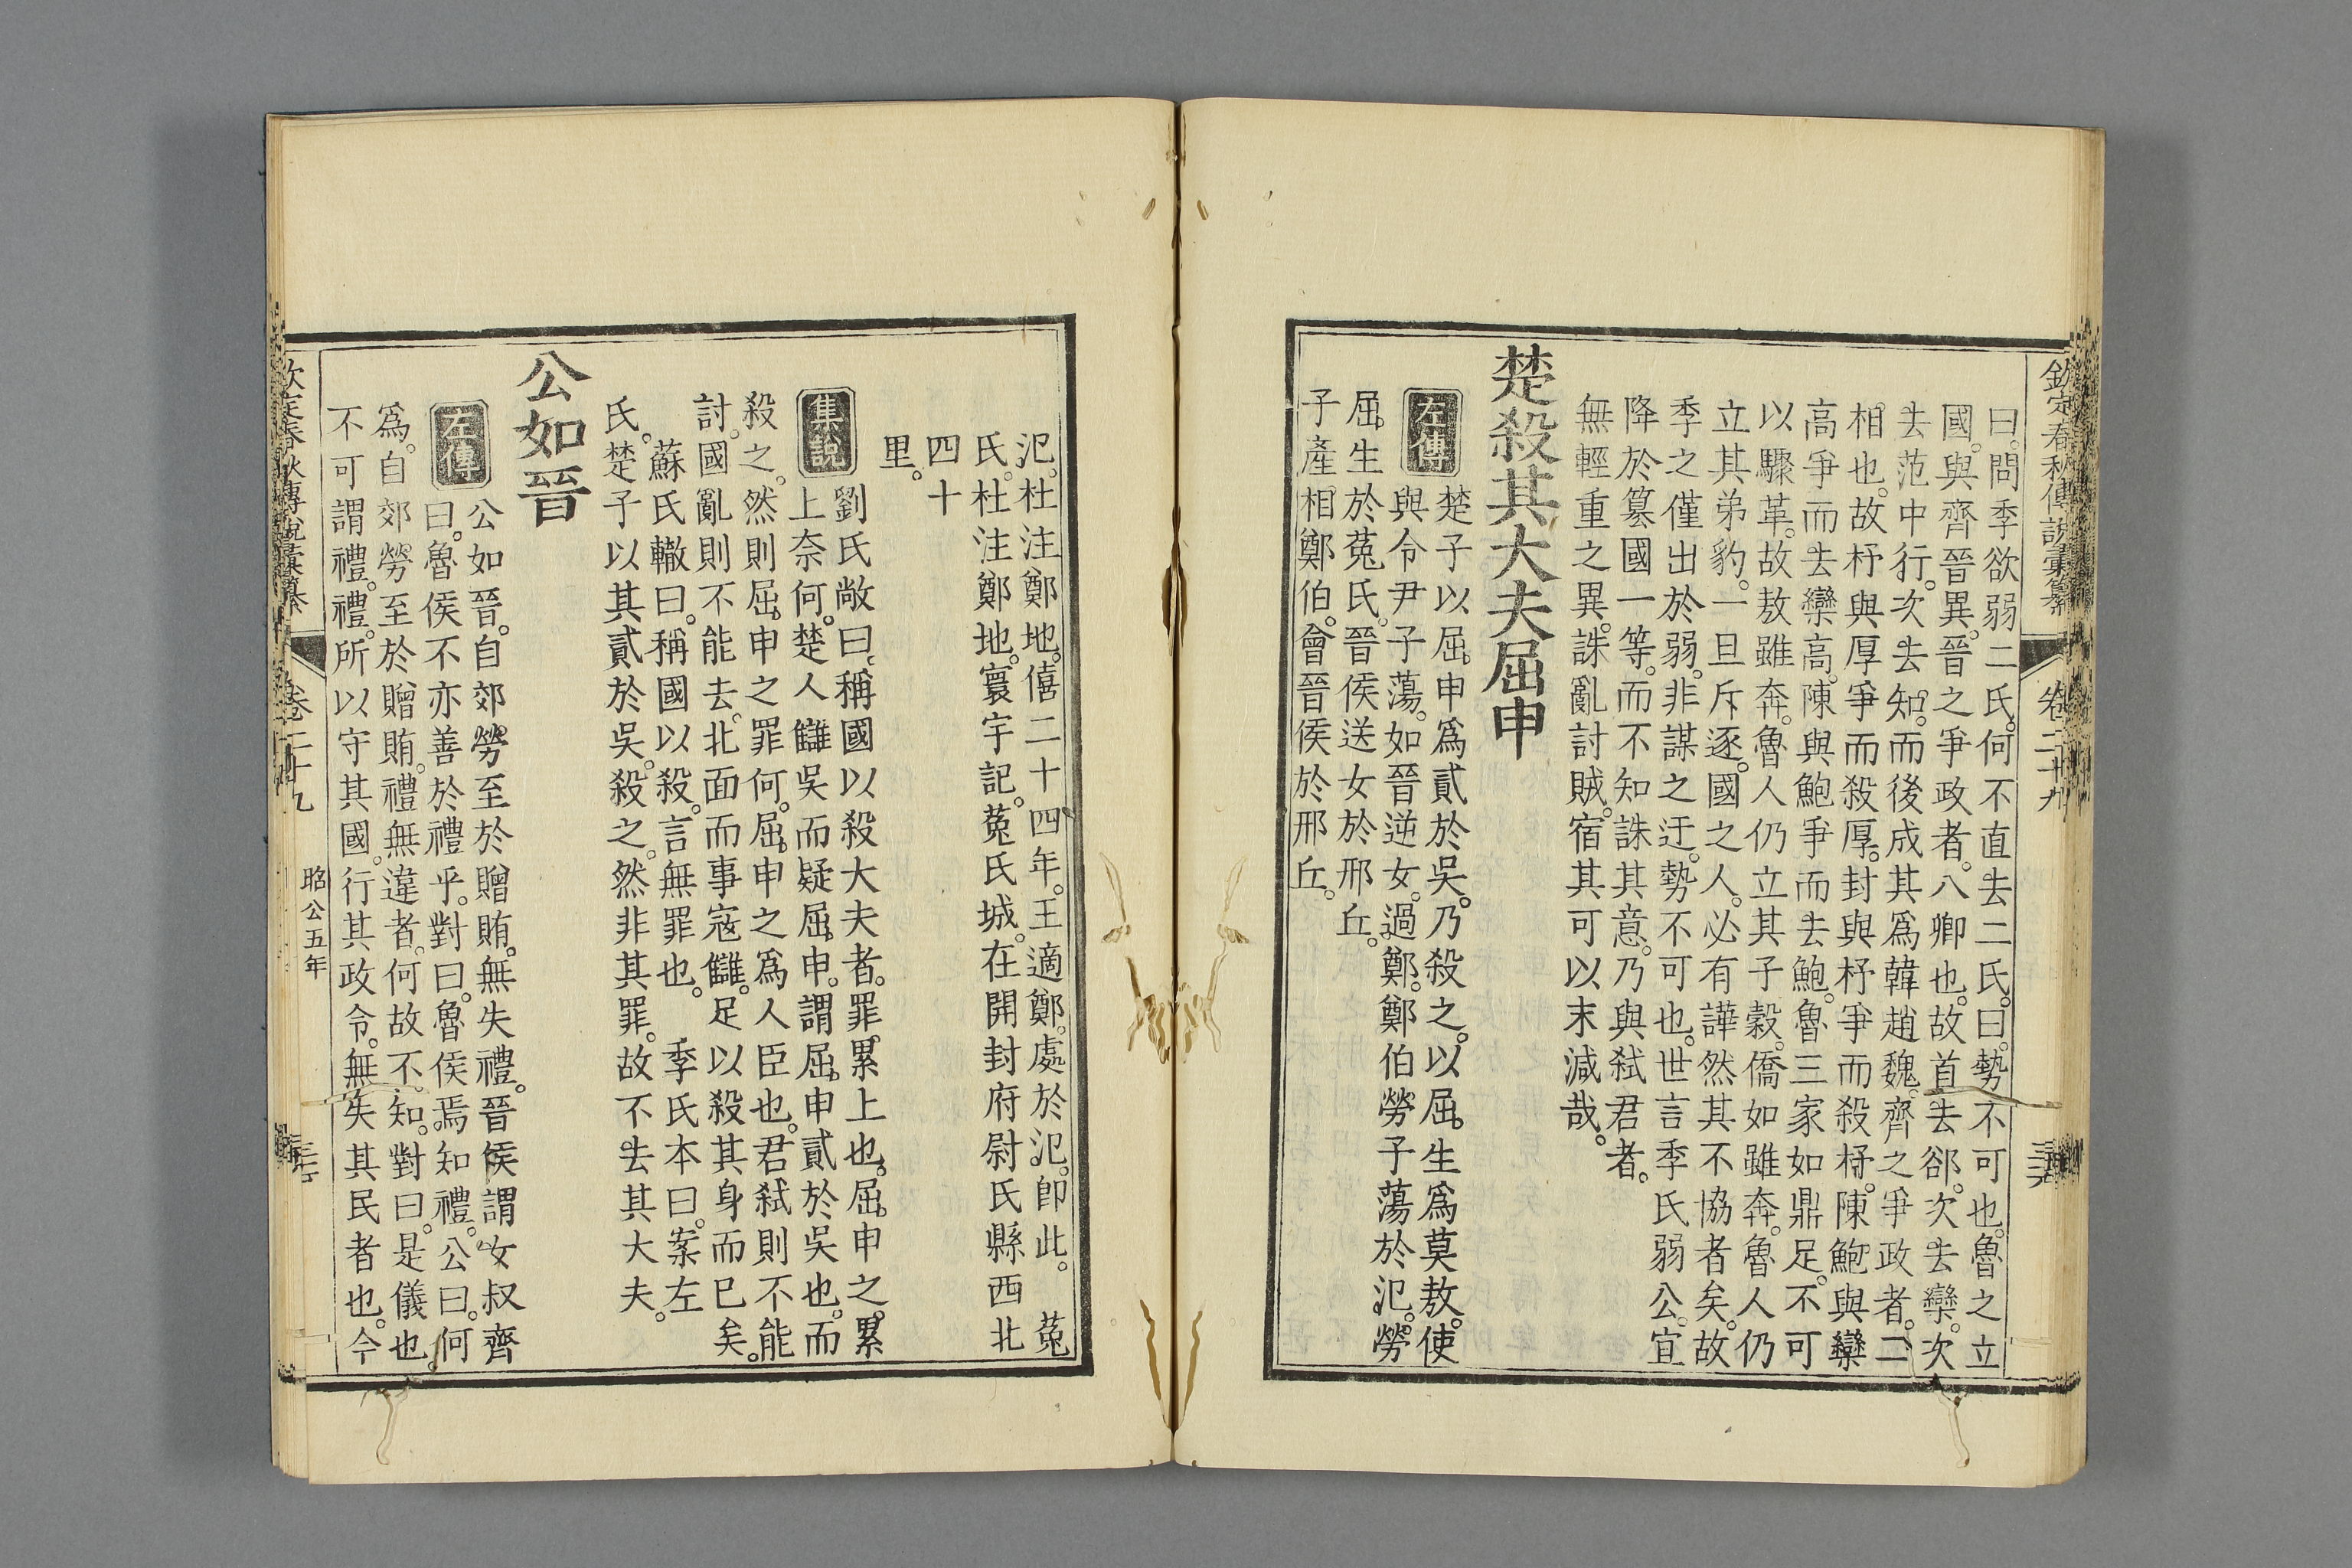 欽定春秋傳說彙纂 卷二十九
曰。問季欲弱二氏。何不直去二氏。曰。勢不可也。魯之立
國。與齊晉異。晉之爭政者。八卿也。故首去郤。次去欒。次
去范中行。次去知。而後成其爲韓趙魏。齊之爭政者。二
相也。故杼與厚爭而殺厚。封與杼爭而殺杼。陳鮑與欒
高爭而去欒高。陳與鮑爭而去鮑。魯三家如鼎足。不可
以驟革。故敖雖奔。魯人仍立其子穀。僑如雖奔。魯人仍
立其弟豹。一旦斥逐。國之人。必有譁然其不協者矣。故
季之僅出於弱。非謀之迂。勢不可也。世言季氏弱公。宜
降於篡國一等。而不知誅其意。乃與弒君者。
無輕重之異。誅亂討賊。宿其可以末減哉。
楚殺其大夫屈申
左傳 楚子以屈申爲貳於吳。乃殺之。以屈生爲莫敖。使
與令尹子蕩。如晉逆女。過鄭。鄭伯勞子蕩於氾。勞
屈生於菟氏。晉侯送女於邢丘。
子產相鄭伯。會晉侯於邢丘。
氾。杜注鄭地。僖二十四年。王適鄭。處於氾。卽此。 菟
氏。杜注鄭地。寰宇記。菟氏城。在開封府尉氏縣西北
四十
里。
集說 劉氏敞曰。稱國以殺大夫者。罪累上也。屈申之。累
上奈何。楚人讎吳而疑屈申。謂屈申貳於吳也。而
殺之。然則屈申之罪何。屈申之爲人臣也。君弒則不能
討。國亂則不能去。北面而事寇讎。足以殺其身而已矣。
蘇氏轍曰。稱國以殺。言無罪也。 季氏本曰。案左
氏。楚子以其貳於吳。殺之。然非其罪。故不去其大夫。
公如晉
左傳 公如晉。自郊勞至於贈賄。無失禮。晉侯謂女叔齊
曰。魯侯不亦善於禮乎。對曰。魯侯焉知禮。公曰。何
爲。自郊勞至於贈賄。禮無違者。何故不知。對曰。是儀也。
不可謂禮。禮。所以守其國。行其政令。無失其民者也。今
欽定春秋傳說彙纂 卷二十九 昭公五年